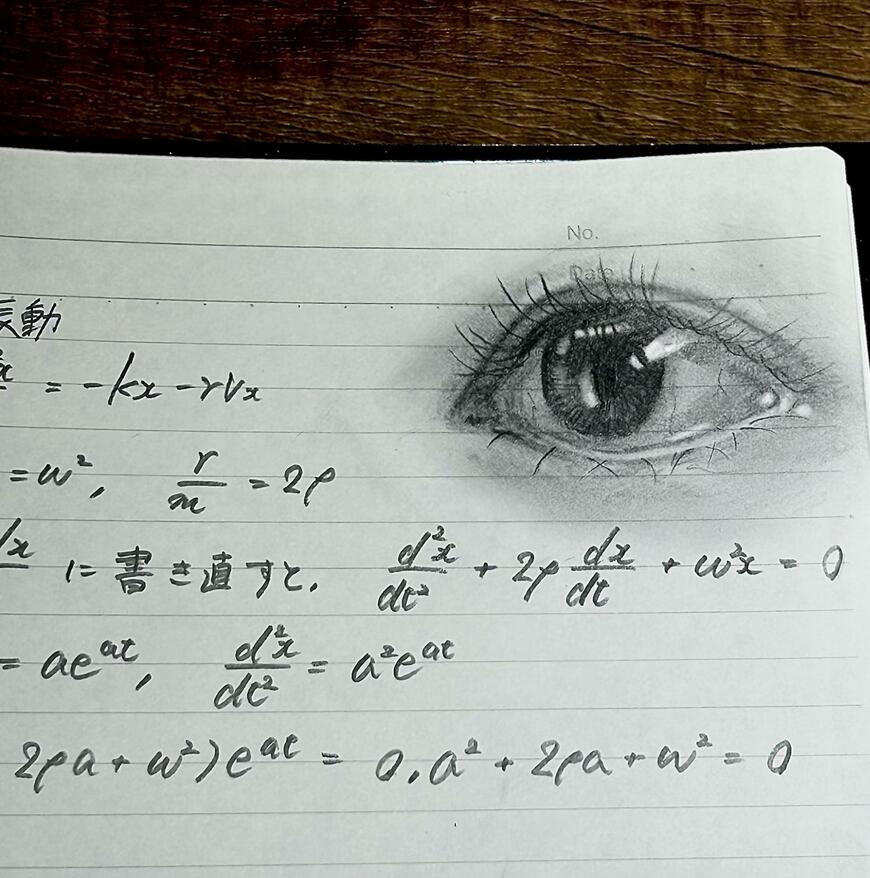 No.
Date
振動
= -kx - rVx
= ω², r/m = 2ρ
dx に書き直すと、 d²x/dt² + 2ρ dx/dt + ω²x = 0
= ae^at, d²x/dt² = a²e^at
2ρa + ω²)e^at = 0, a² + 2ρa + ω² = 0